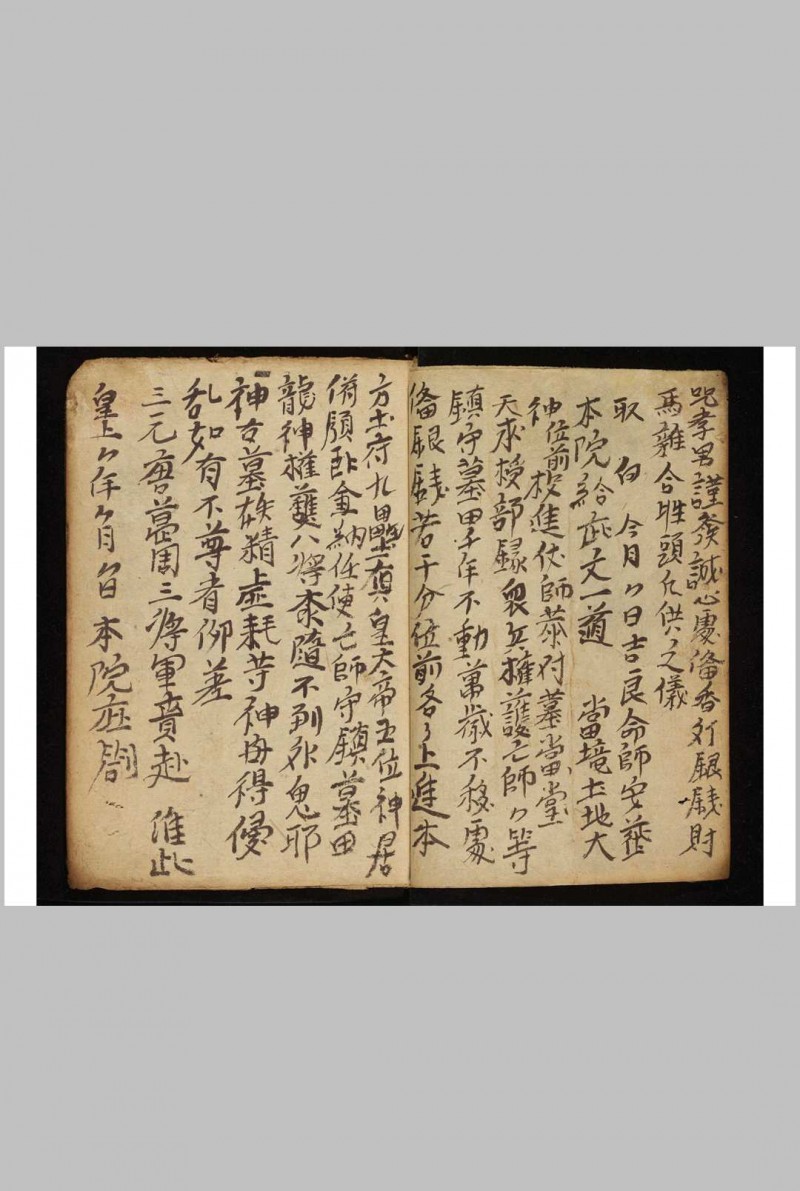 孝男謹發誠心處俻香灯銀錢財
馬雜合牲頭凢供之儀
取 向 今月ク日吉良命師安葬
本院給疏文一道 當境土地大
神位前投進伏師恭对墓當堂
天求授部錄衆兵擁護亡師ク等
鎮守墓田千年不動萬歲不移處
俻銀錢若干分位前各々上進本
方土府九壘真皇大帝五位神君
俯願卧金納任使亡師守鎮墓田
龍神擁護八將来隨不到外鬼耶
神古墓妖精虚耗等神毋得侵
乱如有不尊者仰差
三元唐葛周三將軍賫赴 准此
皇上ク年ク月ク日本院